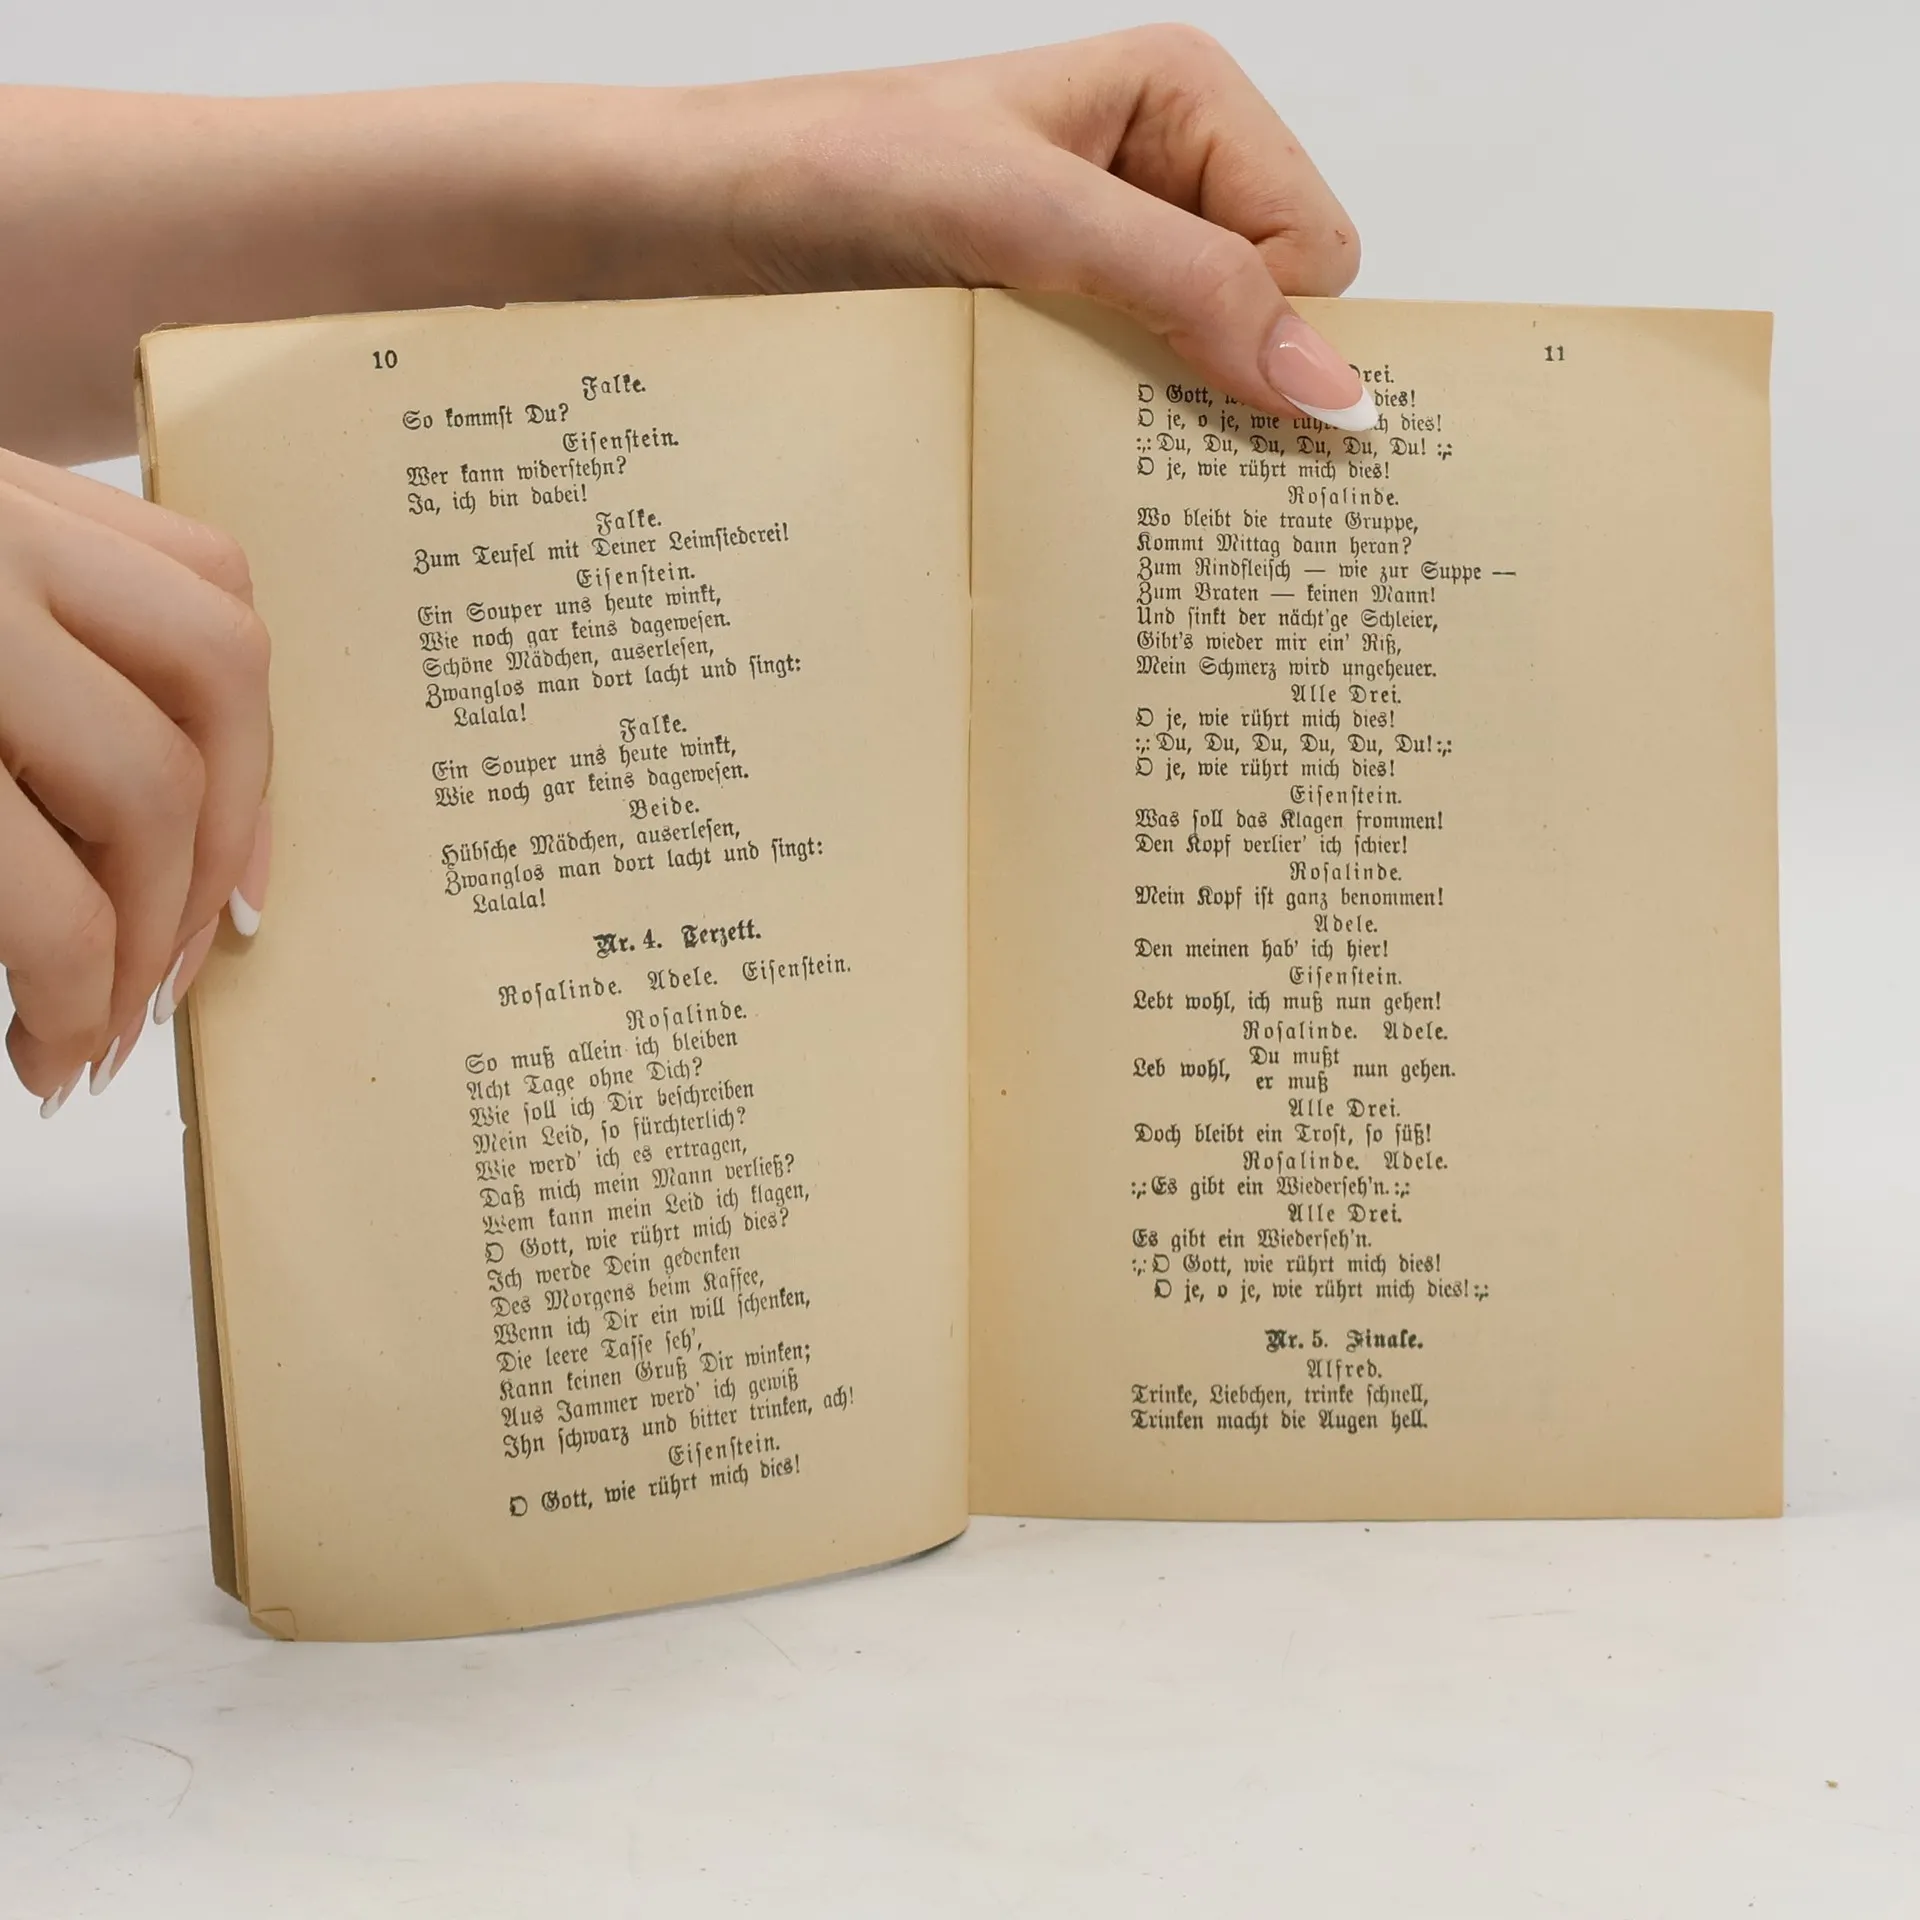 10
Falke.
So kommſt Du?
Eiſenſtein.
Wer kann widerſtehn?
Ja, ich bin dabei!
Falke.
Zum Teufel mit Deiner Leimſiederei!
Eiſenſtein.
Ein Souper uns heute winkt,
Wie noch gar keins dageweſen.
Schöne Mädchen, auserleſen,
Zwanglos man dort lacht und ſingt:
Lalala!
Falke.
Ein Souper uns heute winkt,
Wie noch gar keins dageweſen.
Beide.
Hübſche Mädchen, auserleſen,
Zwanglos man dort lacht und ſingt:
Lalala!
Nr. 4. Terzett.
Roſalinde. Adele. Eiſenſtein.
Roſalinde.
So muß allein ich bleiben
Acht Tage ohne Dich?
Wie ſoll ich Dir beſchreiben
Mein Leid, ſo fürchterlich?
Wie werd' ich es ertragen,
Daß mich mein Mann verließ?
Wem kann mein Leid ich klagen,
O Gott, wie rührt mich dies?
Ich werde Dein gedenken
Des Morgens beim Kaffee,
Wenn ich Dir ein will ſchenken,
Die leere Taſſe ſeh',
Kann keinen Gruß Dir winken;
Aus Jammer werd' ich gewiß
Ihn ſchwarz und bitter trinken, ach!
Eiſenſtein.
O Gott, wie rührt mich dies!
11
Drei.
O Gott, dies!
O je, o je, wie rührt mich dies!
:,: Du, Du, Du, Du, Du, Du! :,:
O je, wie rührt mich dies!
Roſalinde.
Wo bleibt die traute Gruppe,
Kommt Mittag dann heran?
Zum Rindfleiſch — wie zur Suppe —
Zum Braten — keinen Mann!
Und ſinkt der nächt'ge Schleier,
Gibt's wieder mir ein' Riß,
Mein Schmerz wird ungeheuer.
Alle Drei.
O je, wie rührt mich dies!
:,: Du, Du, Du, Du, Du, Du! :,:
O je, wie rührt mich dies!
Eiſenſtein.
Was ſoll das Klagen frommen!
Den Kopf verlier' ich ſchier!
Roſalinde.
Mein Kopf iſt ganz benommen!
Adele.
Den meinen hab' ich hier!
Eiſenſtein.
Lebt wohl, ich muß nun gehen!
Roſalinde. Adele.
Leb wohl, Du mußt nun gehen.
er muß
Alle Drei.
Doch bleibt ein Troſt, ſo ſüß!
Roſalinde. Adele.
:,: Es gibt ein Wiederſeh'n. :,:
Alle Drei.
Es gibt ein Wiederſeh'n.
:,: O Gott, wie rührt mich dies!
O je, o je, wie rührt mich dies! :,:
Nr. 5. Finale.
Alfred.
Trinke, Liebchen, trinke ſchnell,
Trinken macht die Augen hell.